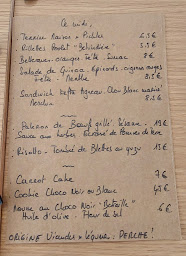 Ce midi,
Terrine Maison + Pickles 5.5€
Rillettes Poulet "Belvédère" 5.5€
Betteraves oranges Feta Sumac 8€
Salade de Quinoa, Epinards, oignons rouges
Feta - Menthe 8.5€
Sandwich Kefta Agneau, Chou blanc mariné
8.5€
Paleron de Bœuf grillé 19€
Sauce aux herbes Pomme de terre
Risotto - Tombée de Blettes au yuzu 13€
Carrot Cake 7€
Cookie Choco Noir ou Blanc
Mousse au Choco Noir 6€
Huile d'olive - Fleur de sel
ORIGINE Viandes + légumes, PERCHE!